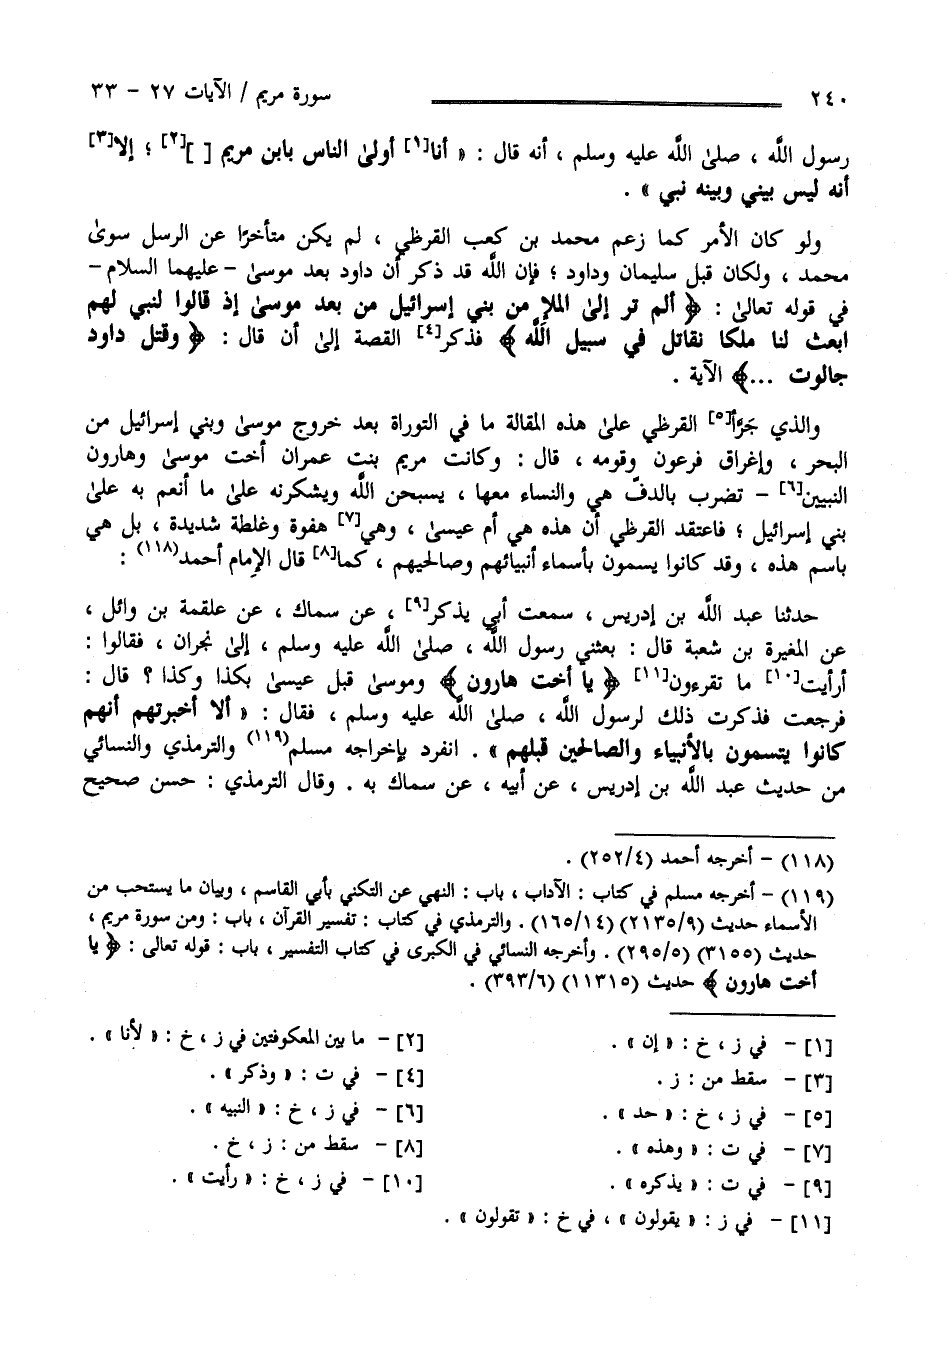 ٢٤٠ سورة مريم / الآيات ٢٧ - ٣٣
رسول اللَّه ، صلىٰ اللَّه عليه وسلم ، أنه قال : « أنا[١] أولىٰ الناس بابن مريم [ ][٢] ؛ إلا[٣]
أنه ليس بيني وبينه نبي » .
ولو كان الأمر كما زعم محمد بن كعب القرظي ، لم يكن متأخرًا عن الرسل سوىٰ
محمد ، ولكان قبل سليمان وداود ؛ فإن اللَّه قد ذكر أن داود بعد موسىٰ -عليهما السلام-
في قوله تعالىٰ : ﴿ ألم تر إلىٰ الملإ من بني إسرائيل من بعد موسىٰ إذ قالوا لنبي لهم
ابعث لنا ملكا نقاتل في سبيل اللَّه ﴾ فذكر[٤] القصة إلىٰ أن قال : ﴿ وقتل داود
جالوت ...﴾ الآية .
والذي جَرَّأ[٥] القرظي علىٰ هذه المقالة ما في التوراة بعد خروج موسىٰ وبني إسرائيل من
البحر ، وإغراق فرعون وقومه ، قال : وكانت مريم بنت عمران أخت موسىٰ وهارون
النبيين[٦] - تضرب بالدفّ هي والنساء معها ، يسبحن اللَّه ويشكرنه علىٰ ما أنعم به علىٰ
بني إسرائيل ؛ فاعتقد القرظي أن هذه هي أم عيسىٰ ، وهي[٧] هفوة وغلطة شديدة ، بل هي
باسم هذه ، وقد كانوا يسمون بأسماء أنبيائهم وصالحيهم ، كما[٨] قال الإمام أحمد(١١٨) :
حدثنا عبد اللَّه بن إدريس ، سمعت أبي يذكر[٩] ، عن سماك ، عن علقمة بن وائل ،
عن المغيرة بن شعبة قال : بعثني رسول اللَّه ، صلىٰ اللَّه عليه وسلم ، إلىٰ نجران ، فقالوا :
أرأيت[١٠] ما تقرءون[١١] ﴿ يا أخت هارون ﴾ وموسىٰ قبل عيسىٰ بكذا وكذا ؟ قال :
فرجعت فذكرت ذلك لرسول اللَّه ، صلىٰ اللَّه عليه وسلم ، فقال : « ألا أخبرتهم أنهم
كانوا يتسمون بالأنبياء والصالحين قبلهم » . انفرد بإخراجه مسلم(١١٩) والترمذي والنسائي
من حديث عبد اللَّه بن إدريس ، عن أبيه ، عن سماك به . وقال الترمذي : حسن صحيح
(١١٨) - أخرجه أحمد (٢٥٢/٤) .
(١١٩) - أخرجه مسلم في كتاب : الآداب ، باب : النهي عن التكني بأبي القاسم ، وبيان ما يستحب من
الأسماء حديث (٢١٣٥/٩) (١٦٥/١٤) . والترمذي في كتاب : تفسير القرآن ، باب : ومن سورة مريم ،
حديث (٣١٥٥) (٢٩٥/٥) . وأخرجه النسائي في الكبرى في كتاب التفسير ، باب : قوله تعالى : ﴿ يا
أخت هارون ﴾ حديث (١١٣١٥) (٣٩٣/٦) .
[١] - في ز ، خ : « إن » . [٢] - ما بين المعكوفتين في ز ، خ : « لأنا » .
[٣] - سقط من : ز . [٤] - في ت : « وذكر » .
[٥] - في ز ، خ : « حد » . [٦] - في ز ، خ : « النبيه » .
[٧] - في ت : « وهذه » . [٨] - سقط من : ز ، خ .
[٩] - في ت : « يذكره » . [١٠] - في ز ، خ : « رأيت » .
[١١] - في ز : « يقولون » ، في خ : « تقولون » .